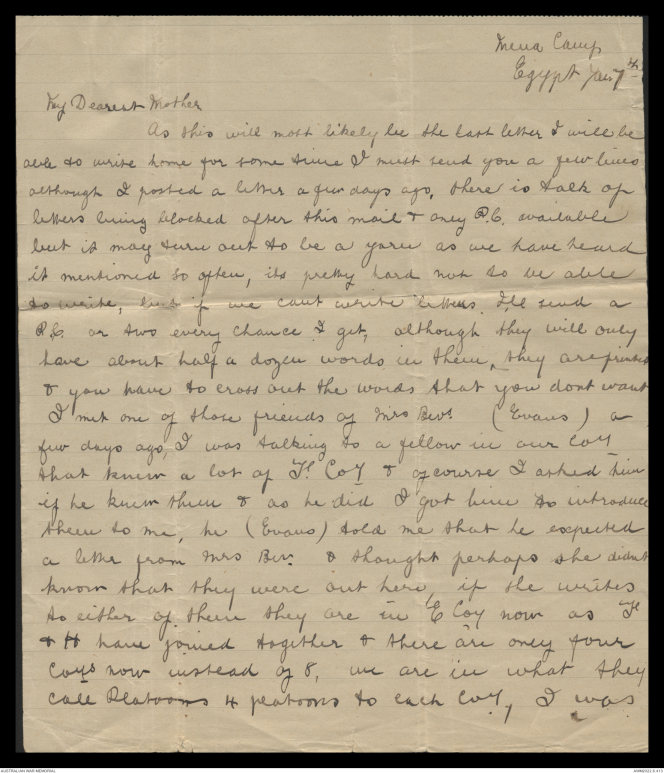 Mena Camp
Egypt Jan 7th
My Dearest Mother
As this will most likely be the last letter I will be
able to write home for some time I must send you a few lines
although I posted a letter a few days ago, there is talk of
letters being blocked after this mail & only P.C. available
but it may turn out to be a yarn as we have heard
it mentioned so often, its pretty hard not to be able
to write, but if we cant write letters I'll send a
P.C. or two every chance I get, although they will only
have about half a dozen words in them, they are printed
& you have to cross out the words that you dont want
I met one of those friends of Mrs Bevs. (Evans) a
few days ago, I was talking to a fellow in our Coy
that knew a lot of F. Coy & of course I asked him
if he knew them & as he did I got him to introduce
them to me, he (Evans) told me that he expected
a letter from Mrs Bev. & thought perhaps she didnt
know that they were out here, if she writes
to either of them they are in E Coy now as F
& H have joined together & there are only four
Coys now instead of 8, we are in what they
call Platoons 4 platoons to each Coy, I was
AUSTRALIAN WAR MEMORIAL